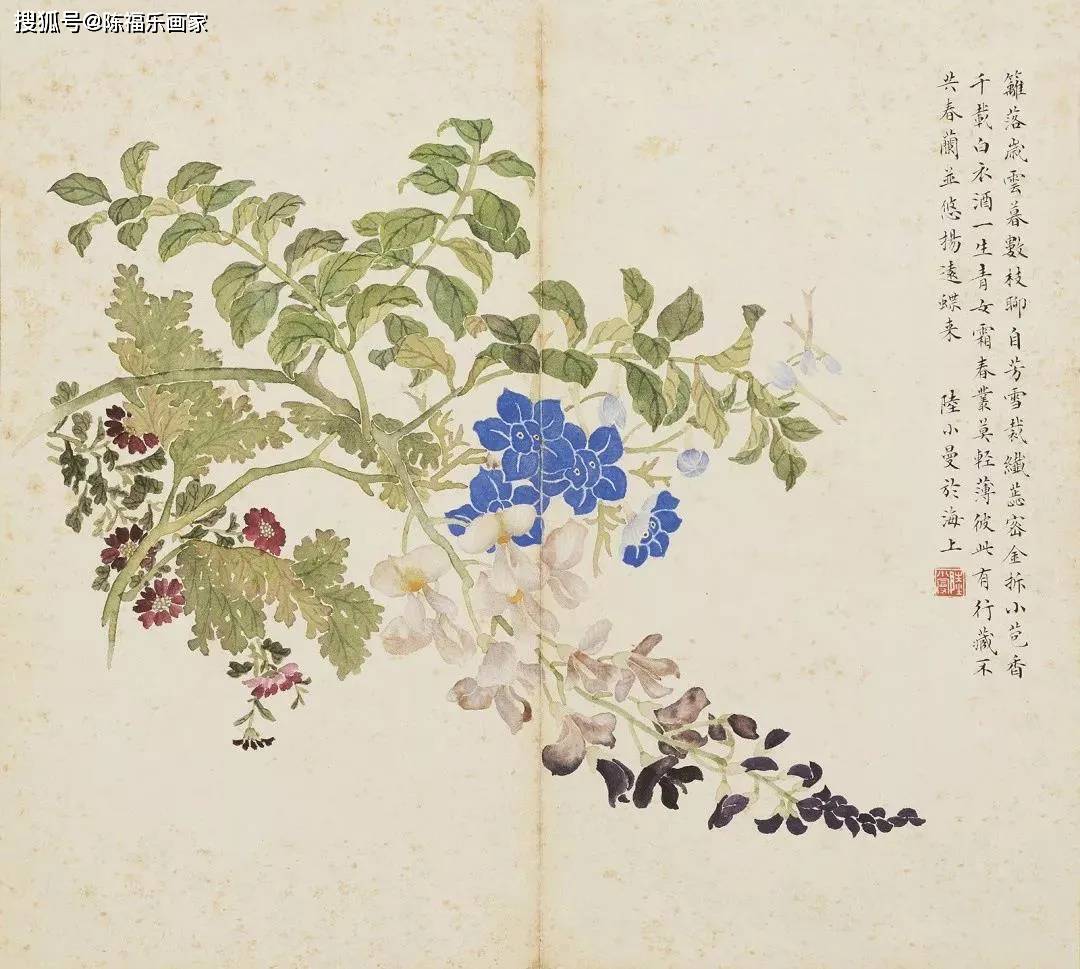 搜狐号@陈福乐画家
籬落嵗雲暮數枝聊自芳雪裁纖蕊密金拆小苞香
千載白衣酒一生青女霜春叢莫輕薄彼此有行藏不
共春蘭並悠揚遠蝶来
陸小曼於海上